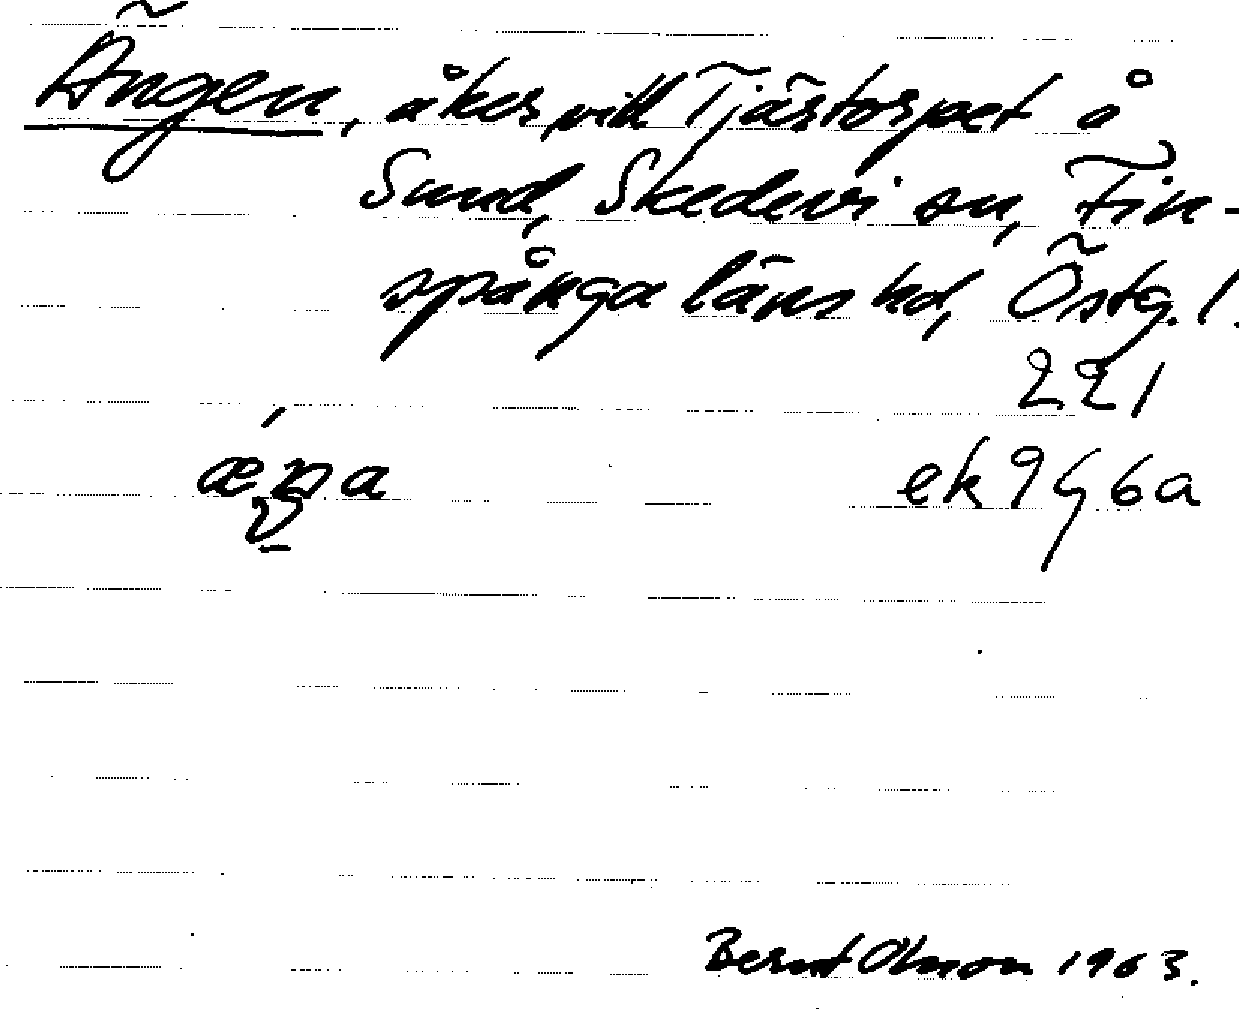 Ängen, åker vid Tjästorpet å
Sund, Skedevi sn, Fin-
spånga läns hd, Östg. l.
221
ek 9G6a
Bernt Olsson 1963.